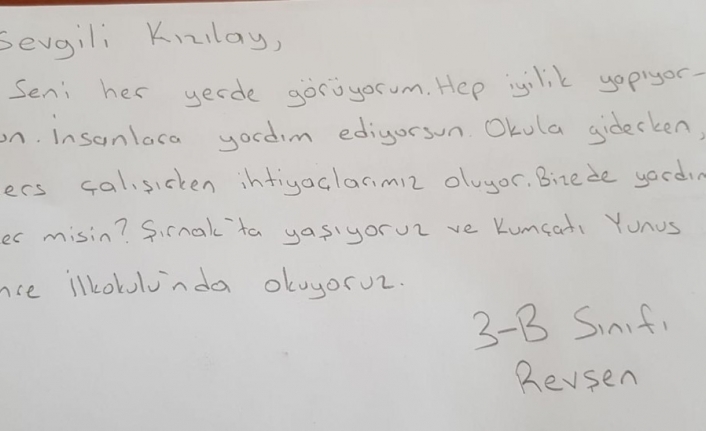 Sevgili Kızılay,
Seni her yerde görüyorum. Hep iyilik yapıyor-
un. İnsanlara yardım ediyorsun. Okula giderken,
ers çalışırken ihtiyaçlarımız oluyor. Bizede yardım
er misin? Şırnak'ta yaşıyoruz ve Kumçatı Yunus
nce İlkokulu'nda okuyoruz.
3-B Sınıfı
Revşen